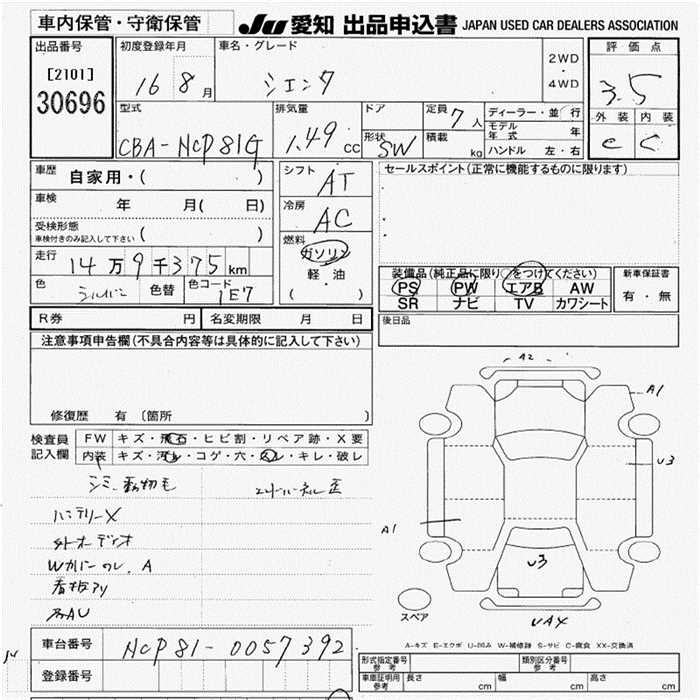 車内保管・守衛保管
JU 愛知 出品申込書 JAPAN USED CAR DEALERS ASSOCIATION
出品番号
[2101]
30696
初度登録年月
16 8月
車名・グレード
シエンタ
2WD
・
4WD
評価点
3.5
外装 内装
C C
型式
CBA-NCP81G
排気量
1.49 cc
ドア
形状
SW
定員 7人
積載 kg
ディーラー・並 行
モデル年式 年
ハンドル 左・右
車歴 自家用・( )
車検 年 月( 日)
受検形態
車検付きのみ記入して下さい ( )
走行 14万9千375km
色 シルバー
色替
色コード 1E7
シフト AT
冷房 AC
燃料
ガソリン
軽・油
( )
セールスポイント(正常に機能するものに限ります)
・
・
・
装備品(純正品に限り○をつけてください)
PS PW エアB AW
SR ナビ TV カワシート
新車保証書
有・無
後日品
R券 円 名変期限 月 日
注意事項申告欄(不具合内容等は具体的に記入して下さい)
修復歴 有 〔箇所 〕
検査員
記入欄
FW キズ・飛石・ヒビ割・リペア跡・X要
内装 キズ・汚レ・コゲ・穴・スレ・キレ・破レ
シミ、動物毛
バッテリーX
外オーディオ
Wカバーのレ、A
看板アリ
A2
A1
U3
A1
U3
UAX
スペア
A-キズ E-エクボ U-凹み W-補修跡 S-サビ C-腐食 XX-交換済
車台番号 NCP81-0057392
登録番号
形式指定番号
参考
類別区分番号
参考
車庫証明用
参考
長さ cm 幅 cm 高さ cm